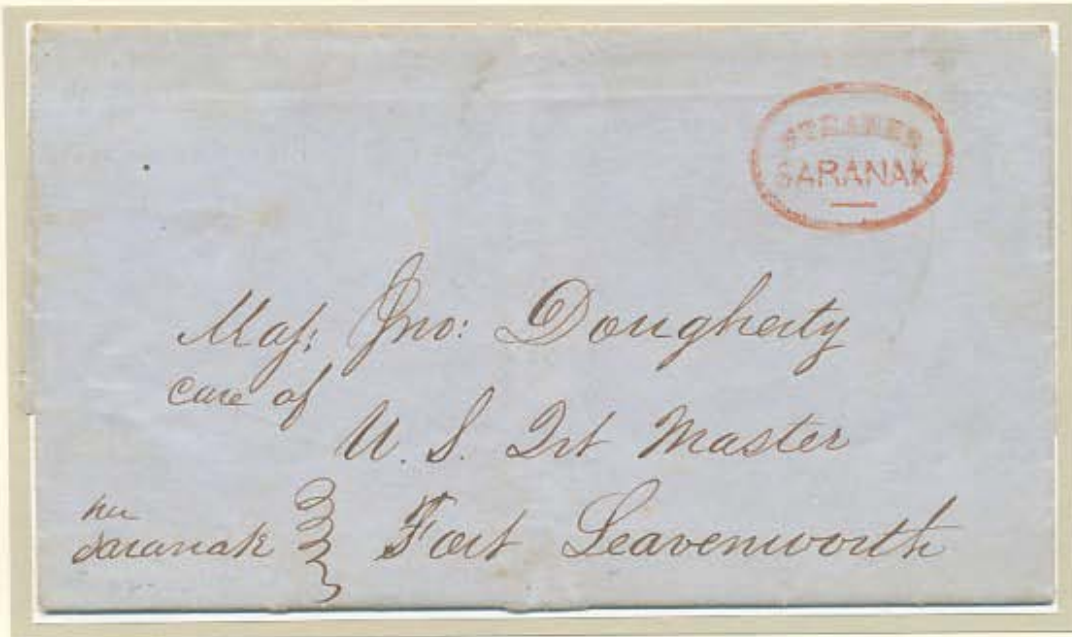 STEAMER
SARANAK
Maj: Jno: Dougherty
Care of
U. S. Qrt Master
Fort Leavenworth
per
Saranak